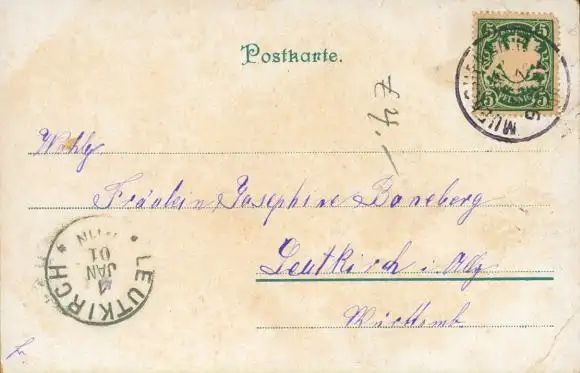 Postkarte.
5 5
5 PFENNIG 5
MÜ
Wohlg
Fräulein Josephine Baneberg
Leutkirch i. Allg
Württemb.
LEUTKIRCH
JAN
01